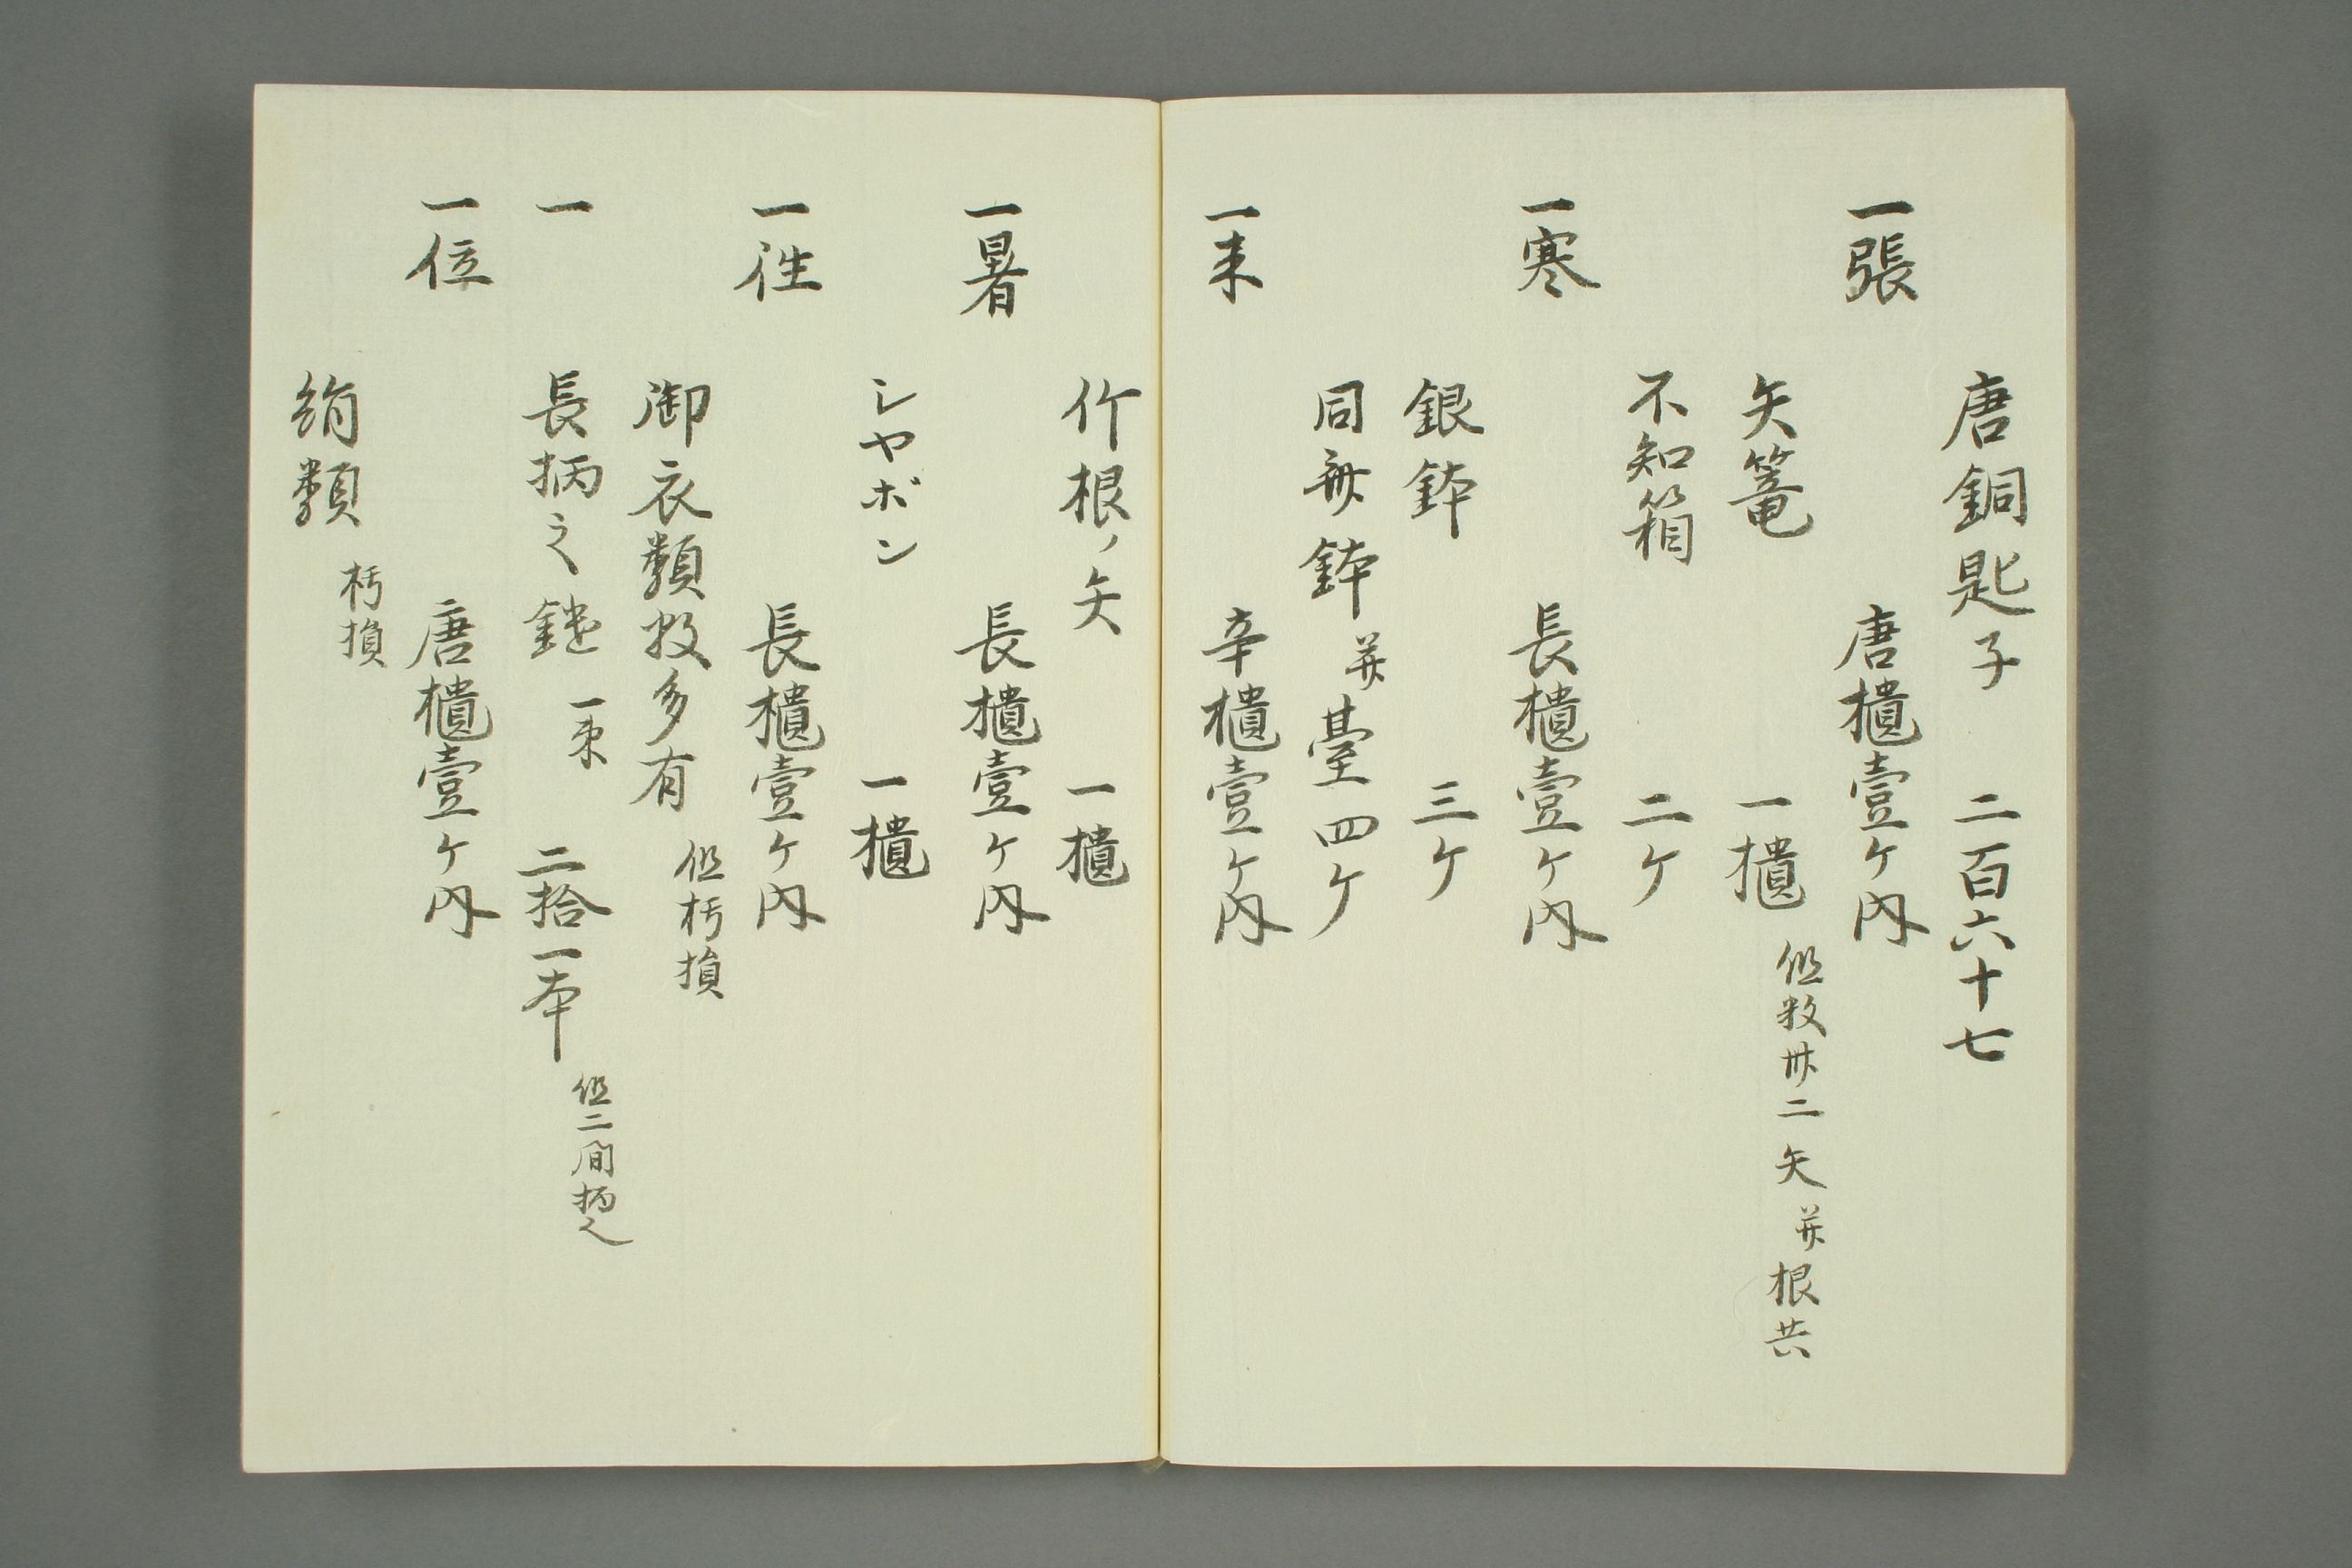 唐銅匙子 二百六十七
一張 唐櫃壹ケ内
矢篭 一櫃 但数卅二矢并根共
不知箱 二ケ
一寒 長櫃壹ケ内
銀鉢 三ケ
同 鉢并臺四ケ
一来 辛櫃壹ケ内
竹根ノ矢 一櫃
一暑 長櫃壹ケ内
シヤボン 一櫃
一徃 長櫃壹ケ内
御衣類数多有 但朽損
一 長柄之 一束 二拾一本 但二間柄
一位 唐櫃壹ケ内
絹類 朽損